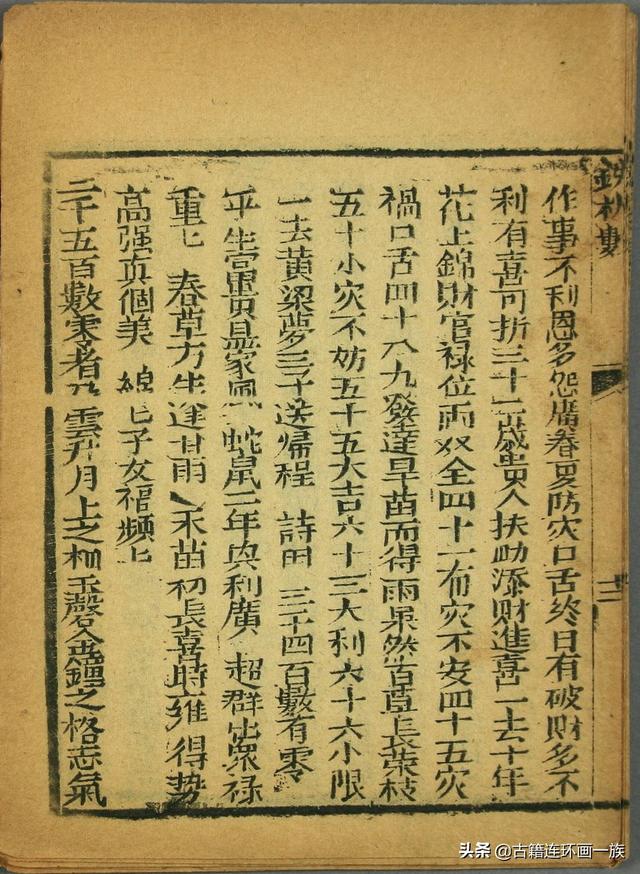 鉄板數
十二
作事不利恩多怨廣春夏防灾口舌終日有破財多不
利有喜可折三十一歲貴人扶助添財進喜一去十年
花上錦財官禄位両双全四十一布灾不安四十五灾
禍口舌四十八九發達旱苗而得雨果然古草長荣枝
五十小灾不妨五十五大吉六十三大利六十六小限
一去黄梁夢三子送歸程 詩曰 三千四百數有零
平生富貴昌家風 蛇鼠二年與利廣 超群出眾禄
重七 春草方生逢甘雨 禾苗初長喜時雍 得势
高强真個美 綿七子女福頻上
三千五百數零者 雲升月上之 玉磬金鐘之格志氣
头条 @古籍连环画一族